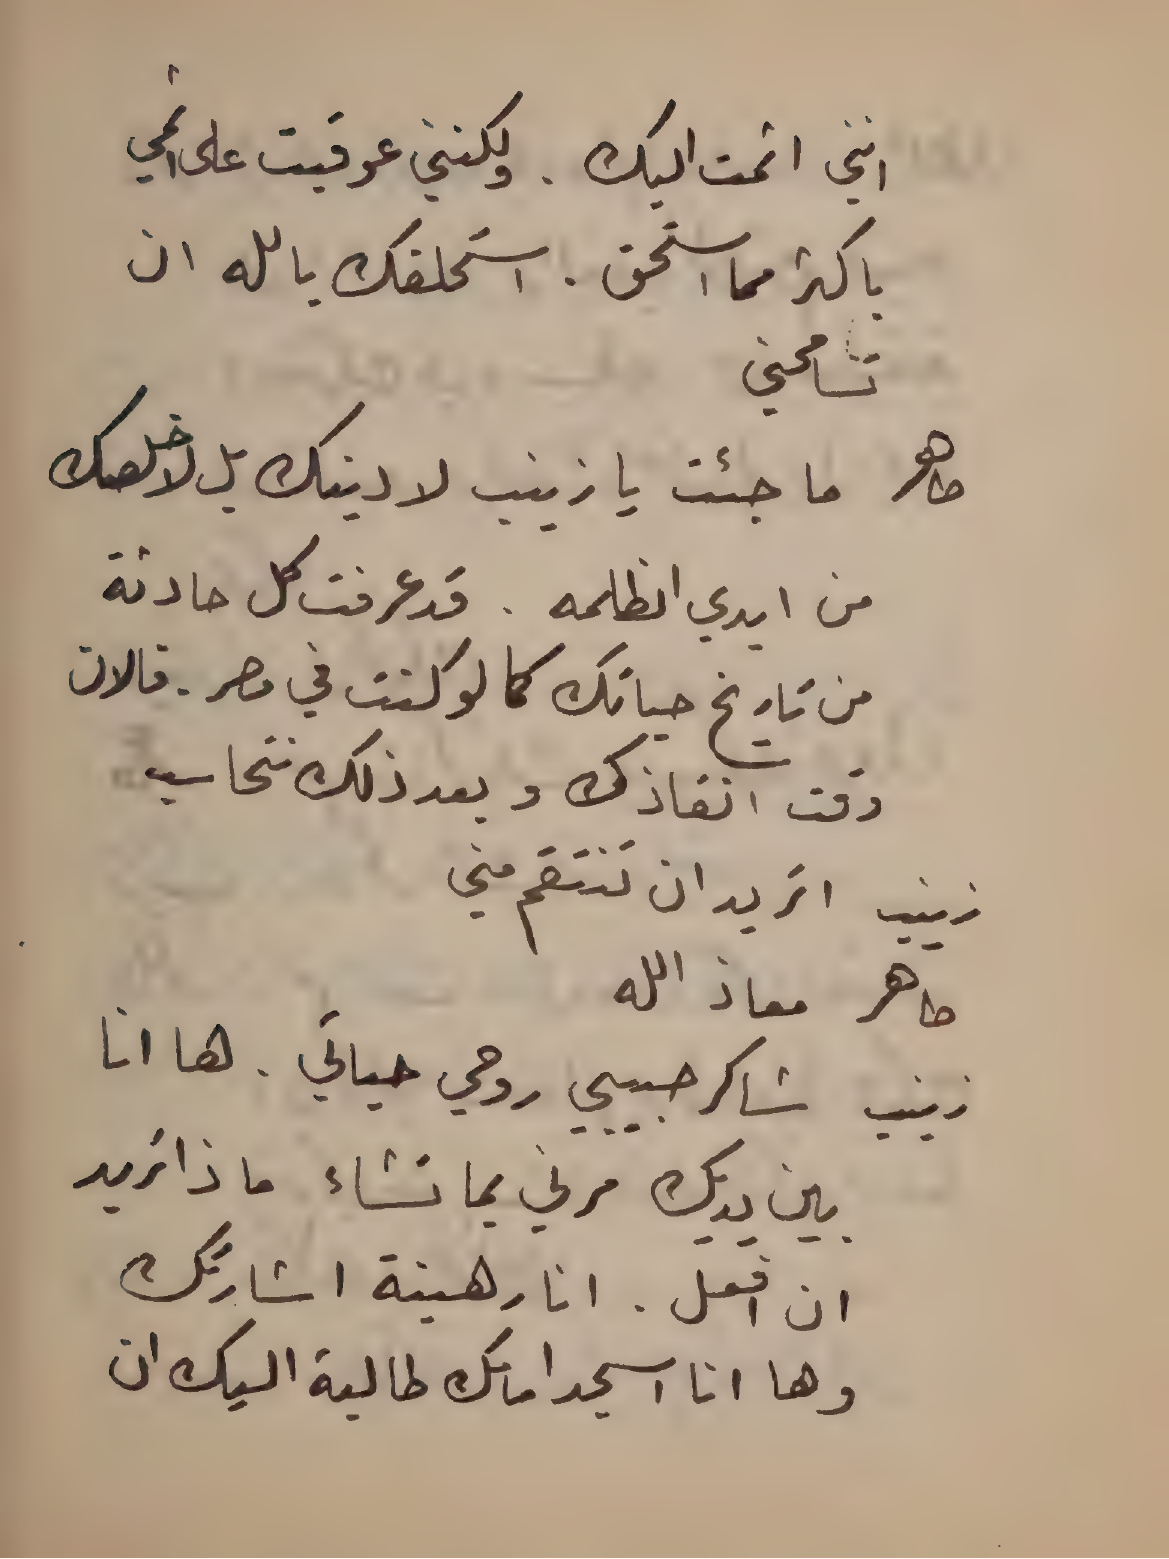 انني اثمت اليك . ولكنني عوقبت على اثمي
باكثر مما استحق . استحلفك بالله ان
تسامحني
طاهر ما جئت يا زينب لادينك بل لاخلصك
من ايدي الظلمه . قد عرفت كل حادثة
من تاريخ حياتك كما لو كنت في مصر . فالان
وقت انقاذك وبعد ذلك نتحاسب
زينب اتريد ان تنتقم مني
طاهر معاذ الله
زينب شاكر حبيبي روحي حياتي . ها انا
بين يديك مرني بما تشاء ماذا تريد
ان افعل . انا رهينة اشارتك
وها انا اسجد امامك طالبة اليك ان